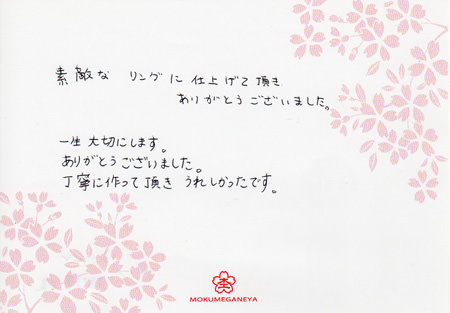 素敵な リングに 仕上げて頂き
ありがとうございました。
一生大切にします。
ありがとうございました。
丁寧に作って頂き うれしかったです。
杢
MOKUMEGANEYA